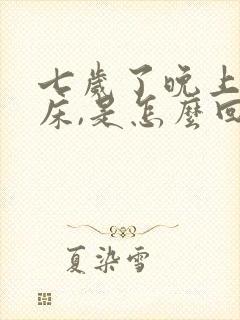 七歲了晚上
床,是怎麼回
夏染雪